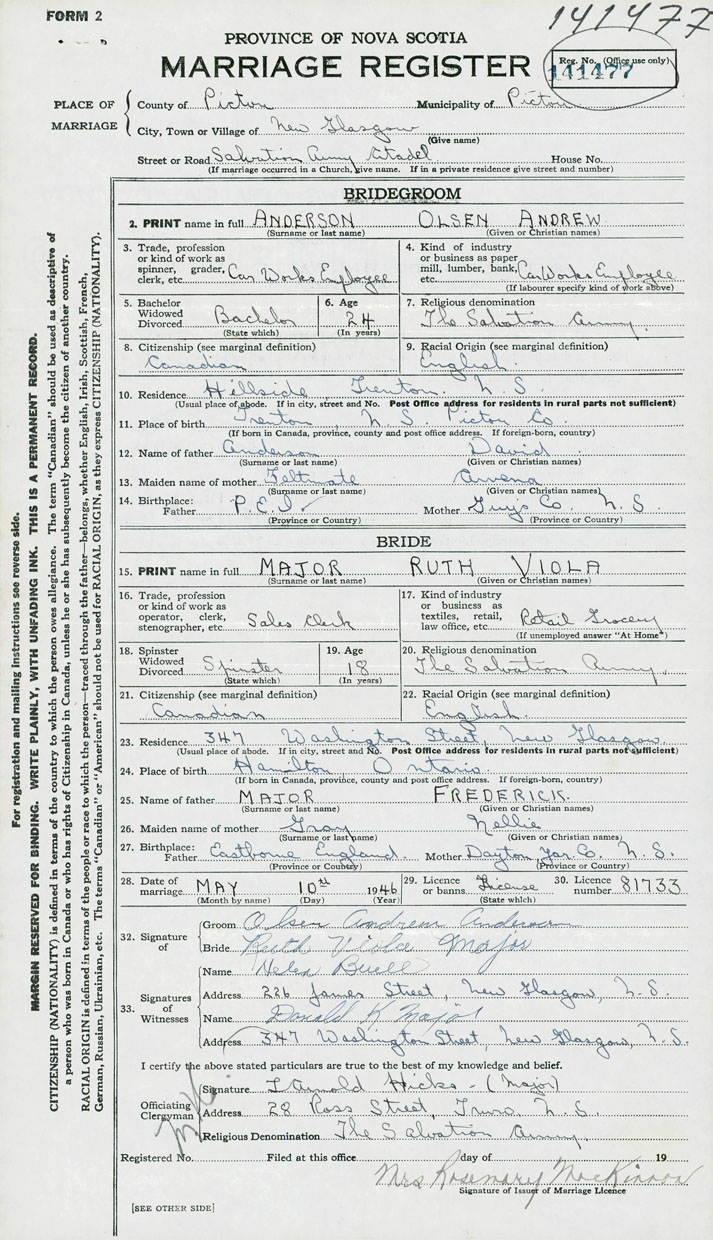 FORM 2
141477
PROVINCE OF NOVA SCOTIA
MARRIAGE REGISTER
Reg. No. (Office use only)
141477
PLACE OF MARRIAGE
County of Pictou Municipality of Pictou
City, Town or Village of New Glasgow
(Give name)
Street or Road Salvation Army Citadel House No.
(If marriage occurred in a Church, give name. If in a private residence give street and number)
BRIDEGROOM
2. PRINT name in full ANDERSON OLSEN ANDREW
(Surname or last name) (Given or Christian names)
3. Trade, profession or kind of work as spinner, grader, clerk, etc. Car Works Employee
4. Kind of industry or business as paper mill, lumber, bank, etc. Car Works Employee
(If labourer specify kind of work above)
5. Bachelor Widowed Divorced Bachelor
(State which)
6. Age 24
(In years)
7. Religious denomination
The Salvation Army.
8. Citizenship (see marginal definition)
Canadian
9. Racial Origin (see marginal definition)
English.
10. Residence Hillside Trenton. N S.
(Usual place of abode. If in city, street and No. Post Office address for residents in rural parts not sufficient)
11. Place of birth Trenton, N S. Pictou Co.
(If born in Canada, province, county and post office address. If foreign-born, country)
12. Name of father Anderson David
(Surname or last name) (Given or Christian names)
13. Maiden name of mother Feltmate
(Surname or last name) (Given or Christian names)
14. Birthplace: Father P.E.I. Mother Guys Co. N S.
(Province or Country) (Province or Country)
BRIDE
15. PRINT name in full MAJOR RUTH VIOLA
(Surname or last name) (Given or Christian names)
16. Trade, profession or kind of work as operator, clerk, stenographer, etc. Sales Clerk
17. Kind of industry or business as textiles, retail, law office, etc. Retail Grocery
(If unemployed answer "At Home")
18. Spinster Widowed Divorced Spinster
(State which)
19. Age 18
(In years)
20. Religious denomination
The Salvation Army.
21. Citizenship (see marginal definition)
Canadian
22. Racial Origin (see marginal definition)
English.
23. Residence 347 Washington Street, New Glasgow.
(Usual place of abode. If in city, street and No. Post Office address for residents in rural parts not sufficient)
24. Place of birth Hamilton Ontario.
(If born in Canada, province, county and post office address. If foreign-born, country)
25. Name of father MAJOR FREDERICK.
(Surname or last name) (Given or Christian names)
26. Maiden name of mother Gray Nellie
(Surname or last name) (Given or Christian names)
27. Birthplace: Father Eastborne England. Mother Dayton Yar. Co. N. S.
(Province or Country) (Province or Country)
28. Date of marriage MAY 10th 1946
(Month by name) (Day) (Year)
29. Licence or banns License
(State which)
30. Licence number 81733
32. Signature of
Groom Olsen Andrew Anderson
Bride Ruth Viola Major
33. Signatures of Witnesses
Name Helen Buell
Address 226 James Street, New Glasgow, N. S.
Name Donald K Major
Address 347 Washington Street, New Glasgow, N. S.
I certify the above stated particulars are true to the best of my knowledge and belief.
Officiating Clergyman
Signature L Arnold Hicks - (Major)
Address 28 Ross Street, Truro. N. S.
Religious Denomination The Salvation Army.
Registered No. Filed at this office day of 19
Mrs Rosemary MacKinnon
Signature of Issuer of Marriage Licence
[SEE OTHER SIDE]
For registration and mailing instructions see reverse side.
MARGIN RESERVED FOR BINDING. WRITE PLAINLY, WITH UNFADING INK. THIS IS A PERMANENT RECORD.
CITIZENSHIP (NATIONALITY) is defined in terms of the country to which the person owes allegiance. The term "Canadian" should be used as descriptive of
a person who was born in Canada or who has rights of Citizenship in Canada, unless he or she has subsequently become the citizen of another country.
RACIAL ORIGIN is defined in terms of the people or race to which the person—traced through the father—belongs, whether English, Irish, Scottish, French,
German, Russian, Ukrainian, etc. The terms "Canadian" or "American" should not be used for RACIAL ORIGIN, as they express CITIZENSHIP (NATIONALITY).